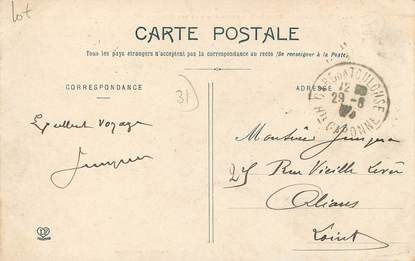 Lot
CARTE POSTALE
Tous les pays étrangers n'acceptent pas la correspondance au recto (Se renseigner à la Poste).
CORRESPONDANCE
ADRESSE
31
GARE DE TOULOUSE
12
29 -6
HTE GARONNE
Excellent voyage
Monsieur
25 Rue Vieille
Orléans
Loiret